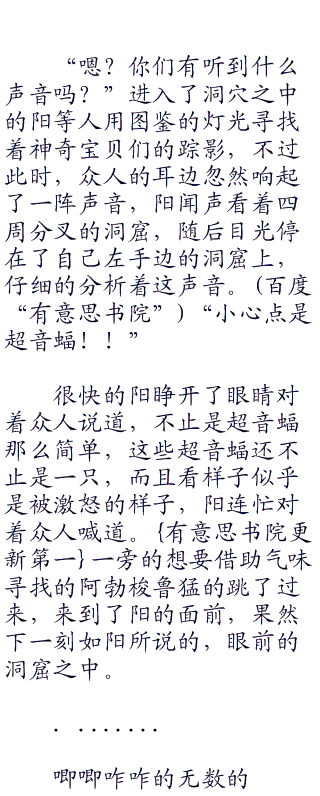 “嗯？你们有听到什么
声音吗？”进入了洞穴之中
的阳等人用图鉴的灯光寻找
着神奇宝贝们的踪影，不过
此时，众人的耳边忽然响起
了一阵声音，阳闻声看着四
周分叉的洞窟，随后目光停
在了自己左手边的洞窟上，
仔细的分析着这声音。(百度
“有意思书院”)“小心点是
超音蝠！！”
很快的阳睁开了眼睛对
着众人说道，不止是超音蝠
那么简单，这些超音蝠还不
止是一只，而且看样子似乎
是被激怒的样子，阳连忙对
着众人喊道。{有意思书院更
新第一}一旁的想要借助气味
寻找的阿勃梭鲁猛的跳了过
来，来到了阳的面前，果然
下一刻如阳所说的，眼前的
洞窟之中。
. .......
唧唧咋咋的无数的